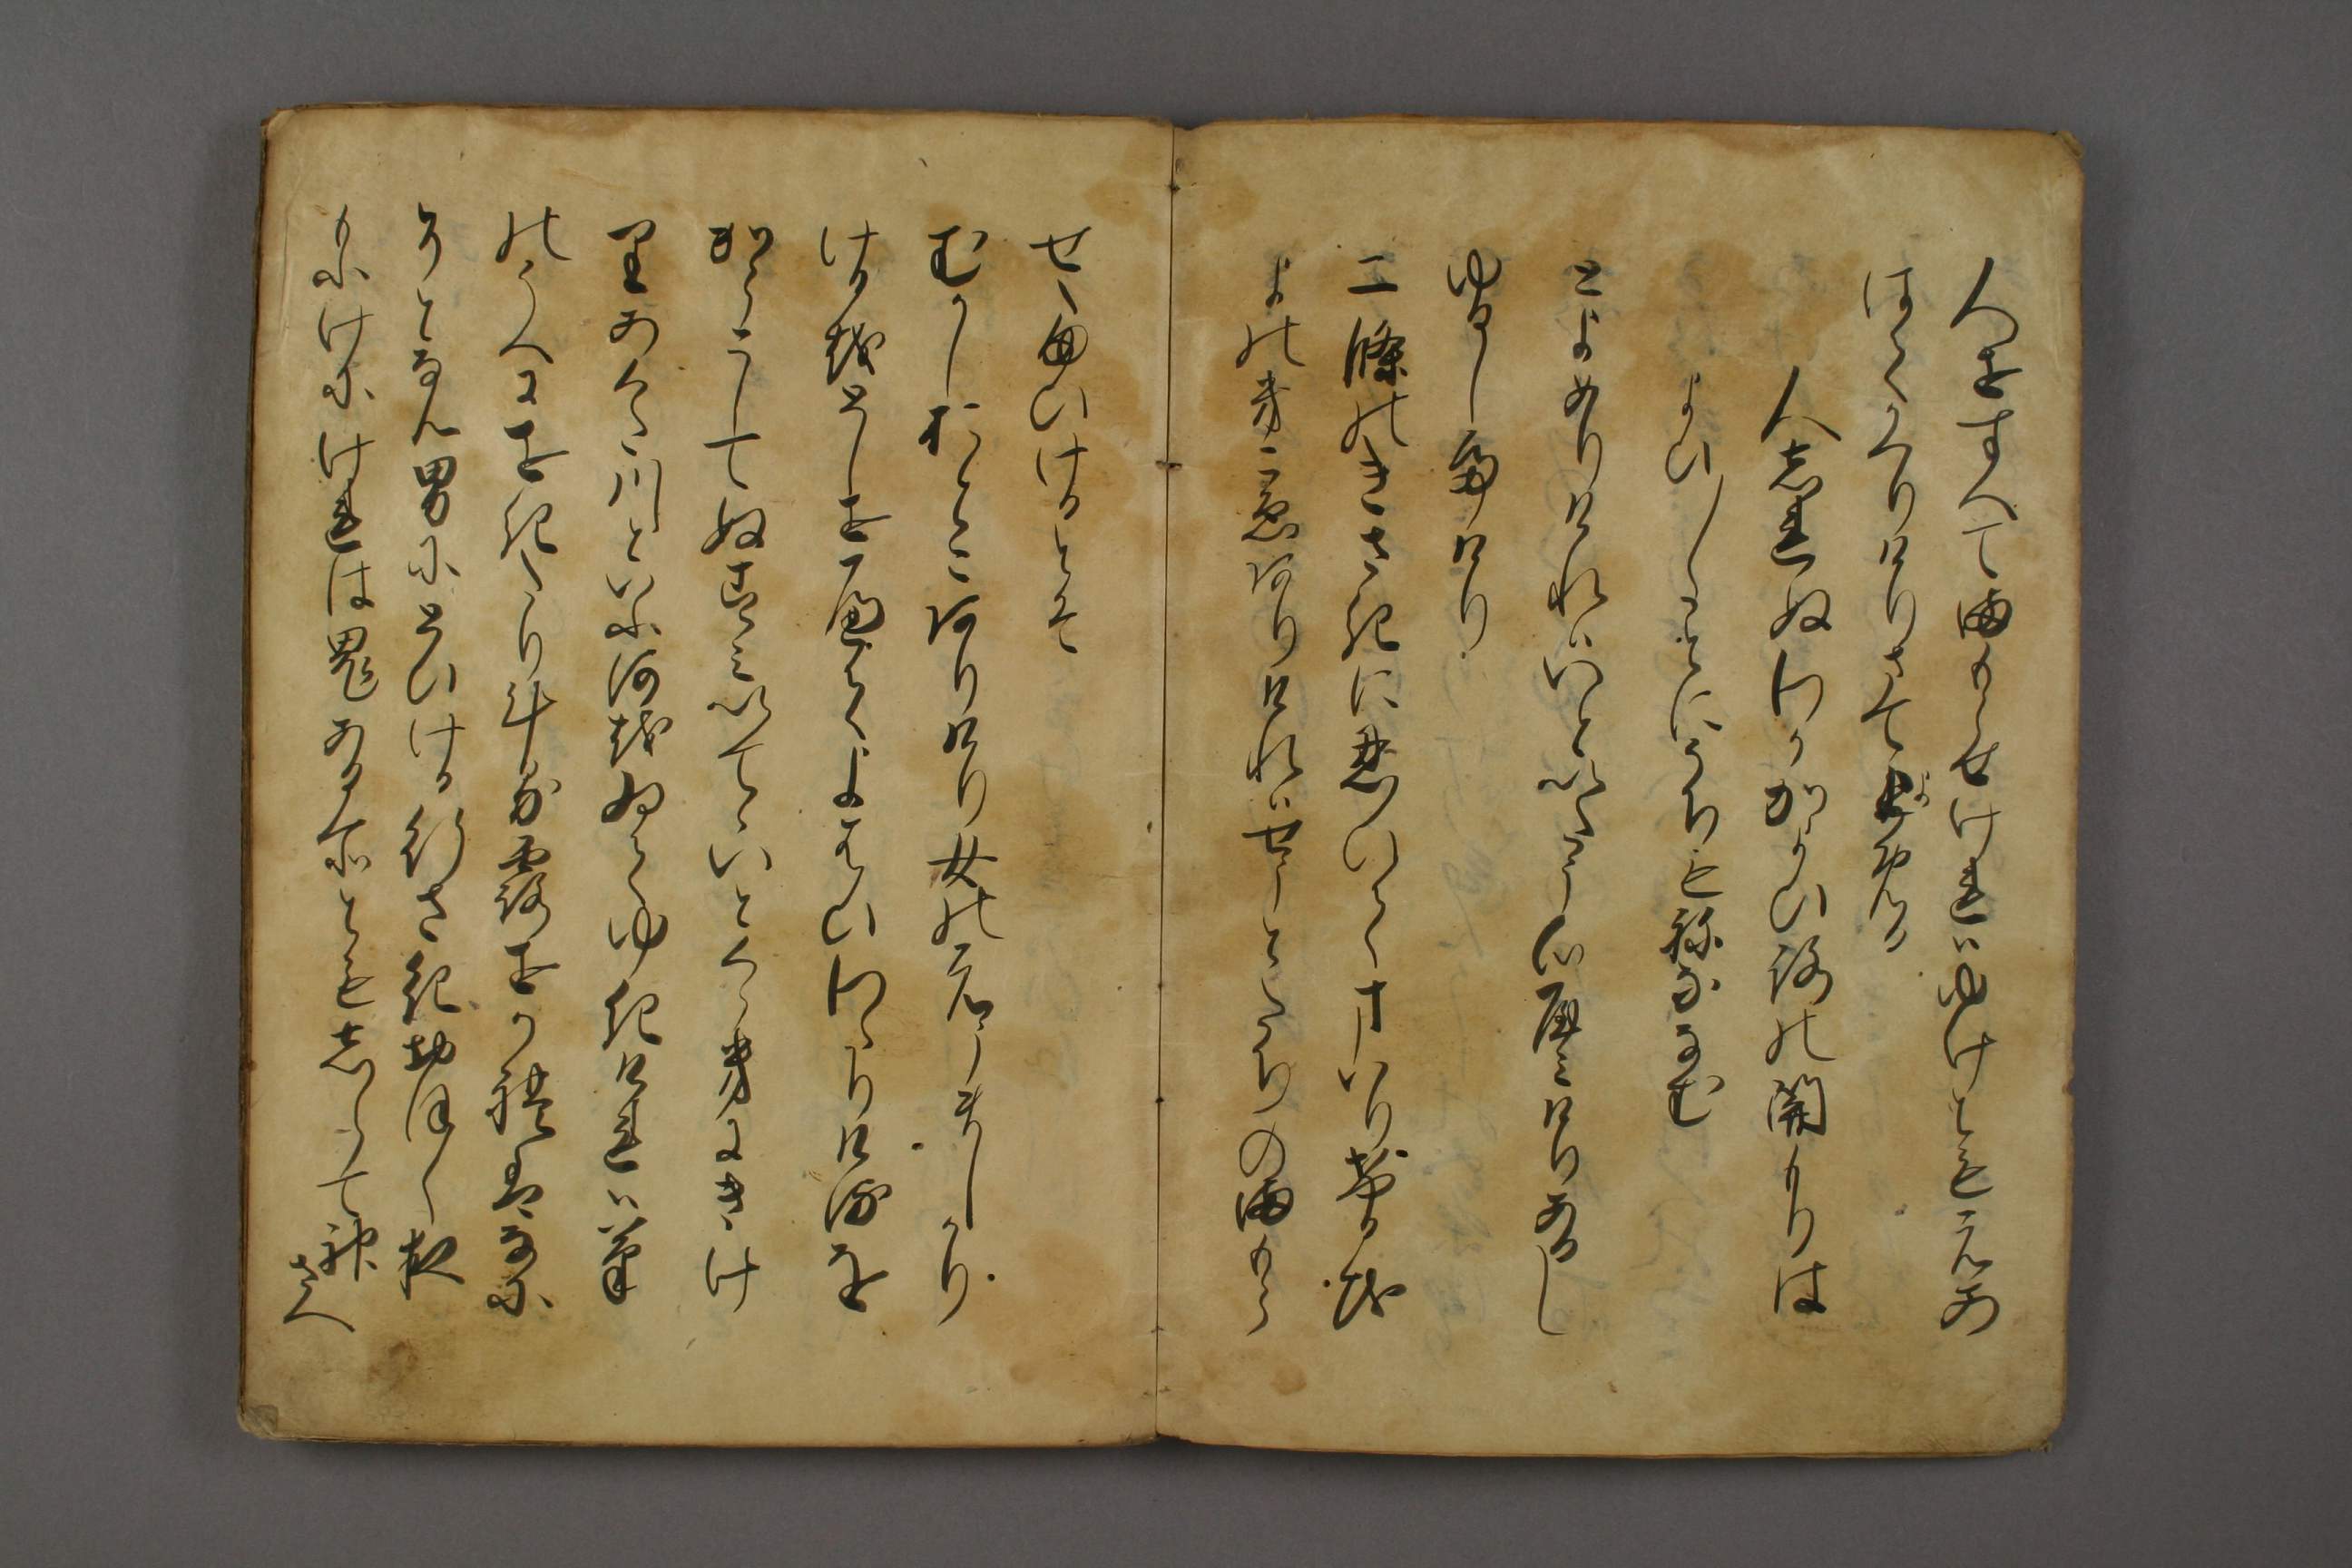 人をすへてまもらせけれはいけともえあ
はてかへりけりさてよめる
人志れぬわかかよひ路の関もりは
よひ〳〵ことにうちもねなゝむ
とよめりけれはいといたう心やみけりあるし
ゆるしてけり
二條のきさきに忍ひてまいりけるを
よのきこえありけれはせうとたちのまもら
せたまひけるとそ
むかしおとこありけり女のえうましかり
けるを年をへてよはひわたりけるを
からうしてぬすみいてゝいとくらきにきけ
りあくた川といふ河をゐてゆきけれは草
のうへにをきたりける露をかれはなに
そとなん男にとひける行さきおほく夜
もふけにけれは鬼ある所ともしらて神
さへ